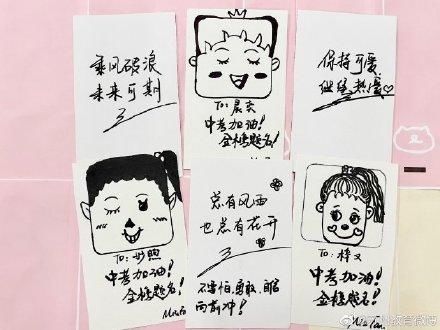 乘风破浪
未来可期
To: 晨玄
中考加油!
金榜题名!
保持可爱
继续热爱
中考加油!
金榜题名!
总有风雨
也总有花开
不害怕, 勇敢,
向前冲!
To: 梓文
中考加油!
金榜题名!